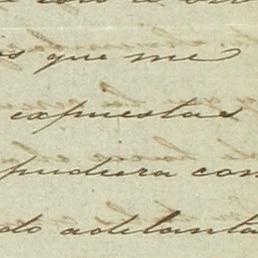 que me
expuestas
pudiera con
do adelanta